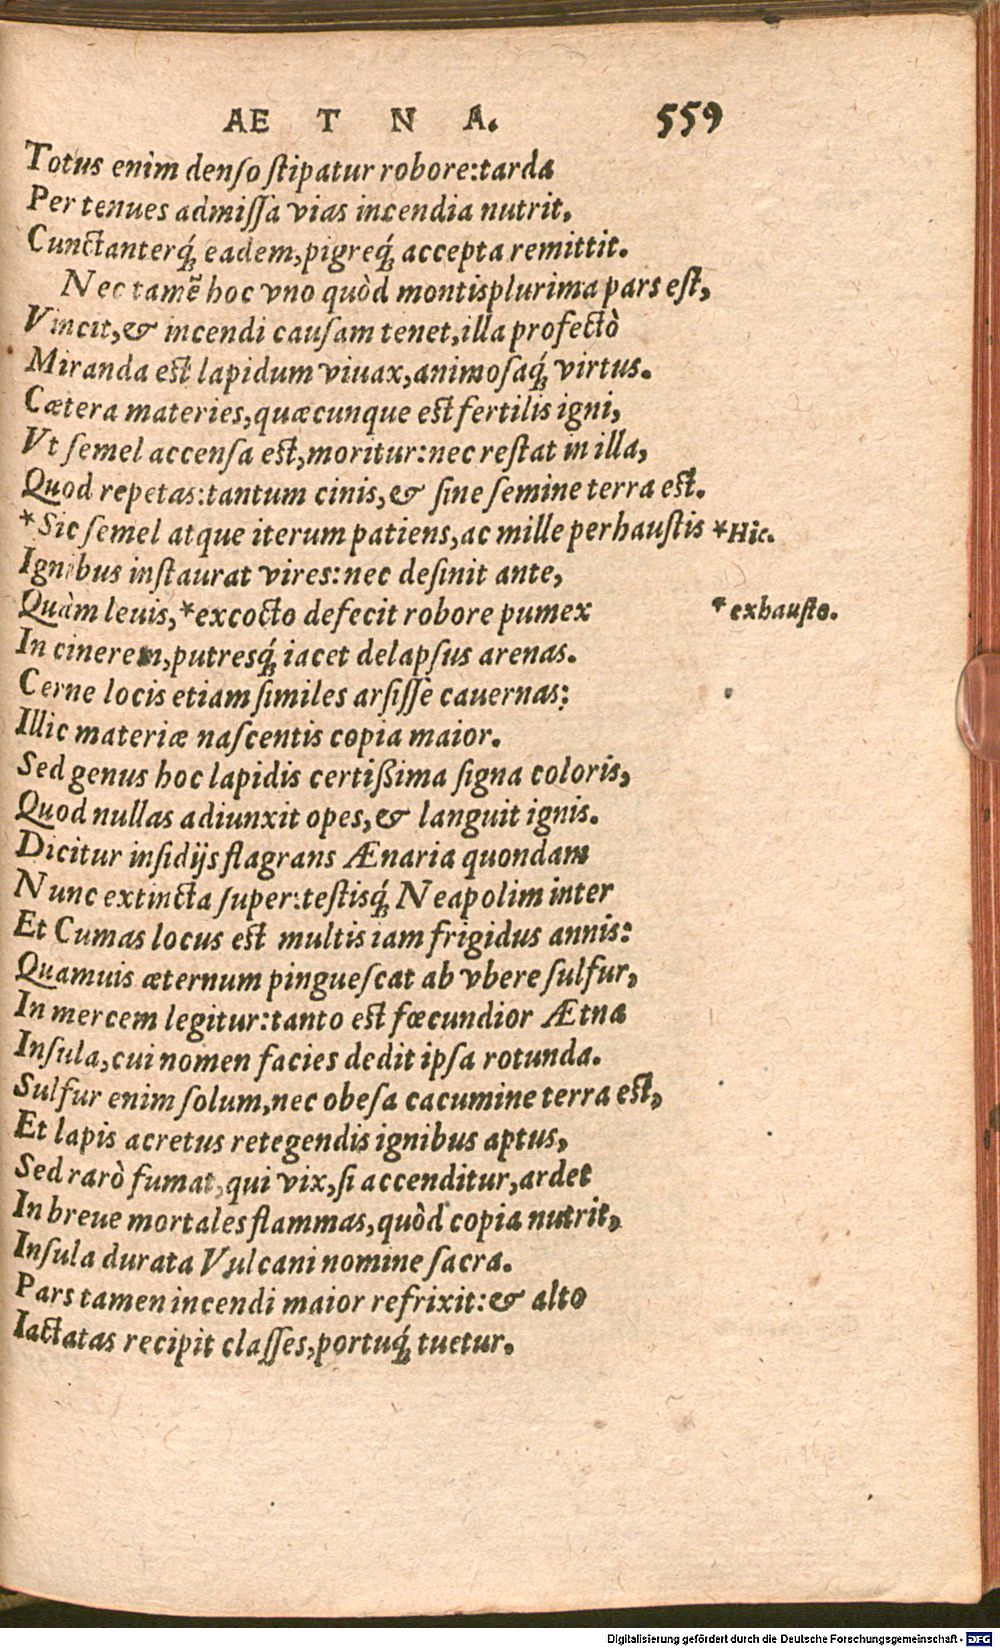 AE T N A. 559
Totus enim denso stipatur robore:tarda
Per tenues admissa vias incendia nutrit,
Cunctanterq́; eadem,pigreq́; accepta remittit.
Nec tamẽ hoc vno quòd montisplurima pars est,
Vincit,& incendi causam tenet,illa profectò
Miranda est lapidum viuax,animosaq́; virtus.
Cætera materies,quæcunque est fertilis igni,
Vt semel accensa est,moritur:nec restat in illa,
Quod repetas:tantum cinis,& sine semine terra est.
*Sic semel atque iterum patiens,ac mille perhaustis *Hic.
Ignibus instaurat vires:nec desinit ante,
Quàm leuis,*excocto defecit robore pumex *exhausto.
In cinerem,putresq́; iacet delapsus arenas.
Cerne locis etiam similes arsisse cauernas:
Illic materiæ nascentis copia maior.
Sed genus hoc lapidis certißima signa coloris,
Quod nullas adiunxit opes,& languit ignis.
Dicitur insidijs flagrans Ænaria quondam
Nunc extincta super:testisq́; Neapolim inter
Et Cumas locus est multis iam frigidus annis:
Quamuis æternum pinguescat ab vbere sulfur,
In mercem legitur:tanto est fœcundior Ætna
Insula,cui nomen facies dedit ipsa rotunda.
Sulfur enim solum,nec obesa cacumine terra est,
Et lapis acretus retegendis ignibus aptus,
Sed rarò fumat,qui vix,si accenditur,ardet
In breue mortales flammas,quòd copia nutrit,
Insula durata Vulcani nomine sacra.
Pars tamen incendi maior refrixit:& alto
Iactatas recipit classes,portuq́; tuetur.
Digitalisierung gefördert durch die Deutsche Forschungsgemeinschaft - DFG